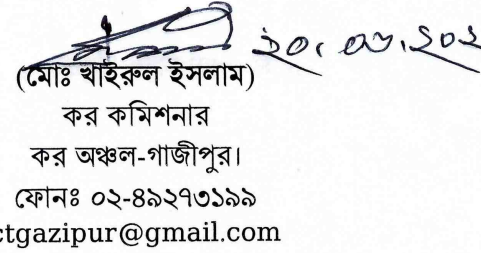 ২০.০৩.২০২
(মোঃ খাইরুল ইসলাম)
কর কমিশনার
কর অঞ্চল-গাজীপুর।
ফোনঃ ০২-৪৯২৭৩১৯৯
ctgazipur@gmail.com